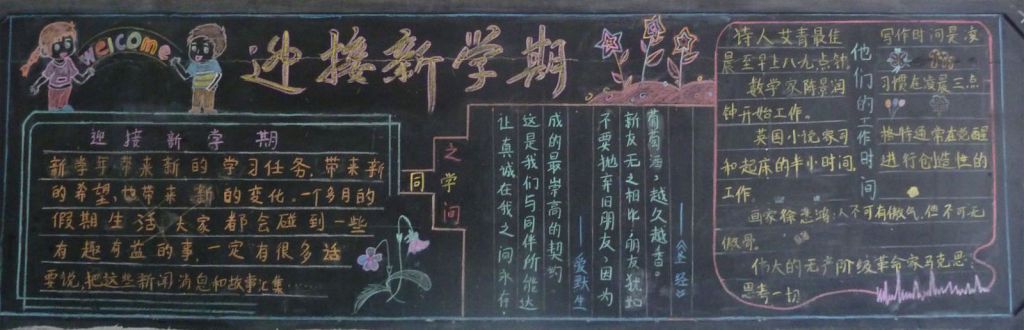 welcome
迎接新学期
迎接新学期
新学年带来新的学习任务,带来新
的希望,也带来新的变化.一个多月的
假期生活大家都会碰到一些
有趣有益的事,一定有很多话
要说,把这些新闻消息和故事汇集……
同学之间
葡萄酒,越久越香。
新友无之相比,朋友犹如
不要抛弃旧朋友,因为
——《圣经》
——爱默生
成的最崇高的契约
这是我们与同伴所能达
让真诚在我之间永存.
他们的工作时间
诗人艾青最佳写作时间是凌
晨至早上八九点钟
数学家陈景润习惯在凌晨三点
钟开始工作。
英国小说家司格特通常在觉醒
和起床的半小时间,进行创造性的
工作。
画家徐悲鸿:人不可有傲气,但不可无
傲骨。
伟大的无产阶级革命家马克思:
思考一切